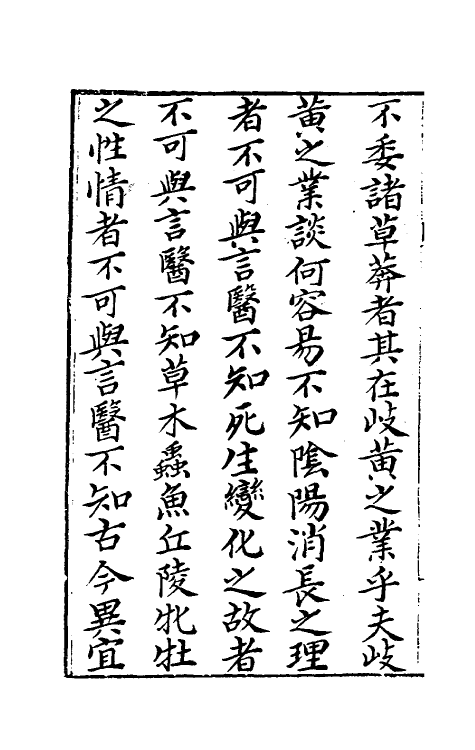 不委諸草莽者其在岐黄之業乎夫岐
黄之業談何容易不知陰陽消長之理
者不可與言醫不知死生變化之故者
不可與言醫不知草木蟲魚丘陵牝牡
之性情者不可與言醫不知古今異宜